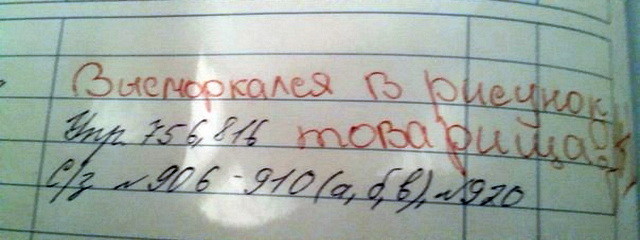 Высморкался в рисунок
Упр. 756, 816 товарища
С/з №906-910 (а, б, в), №920